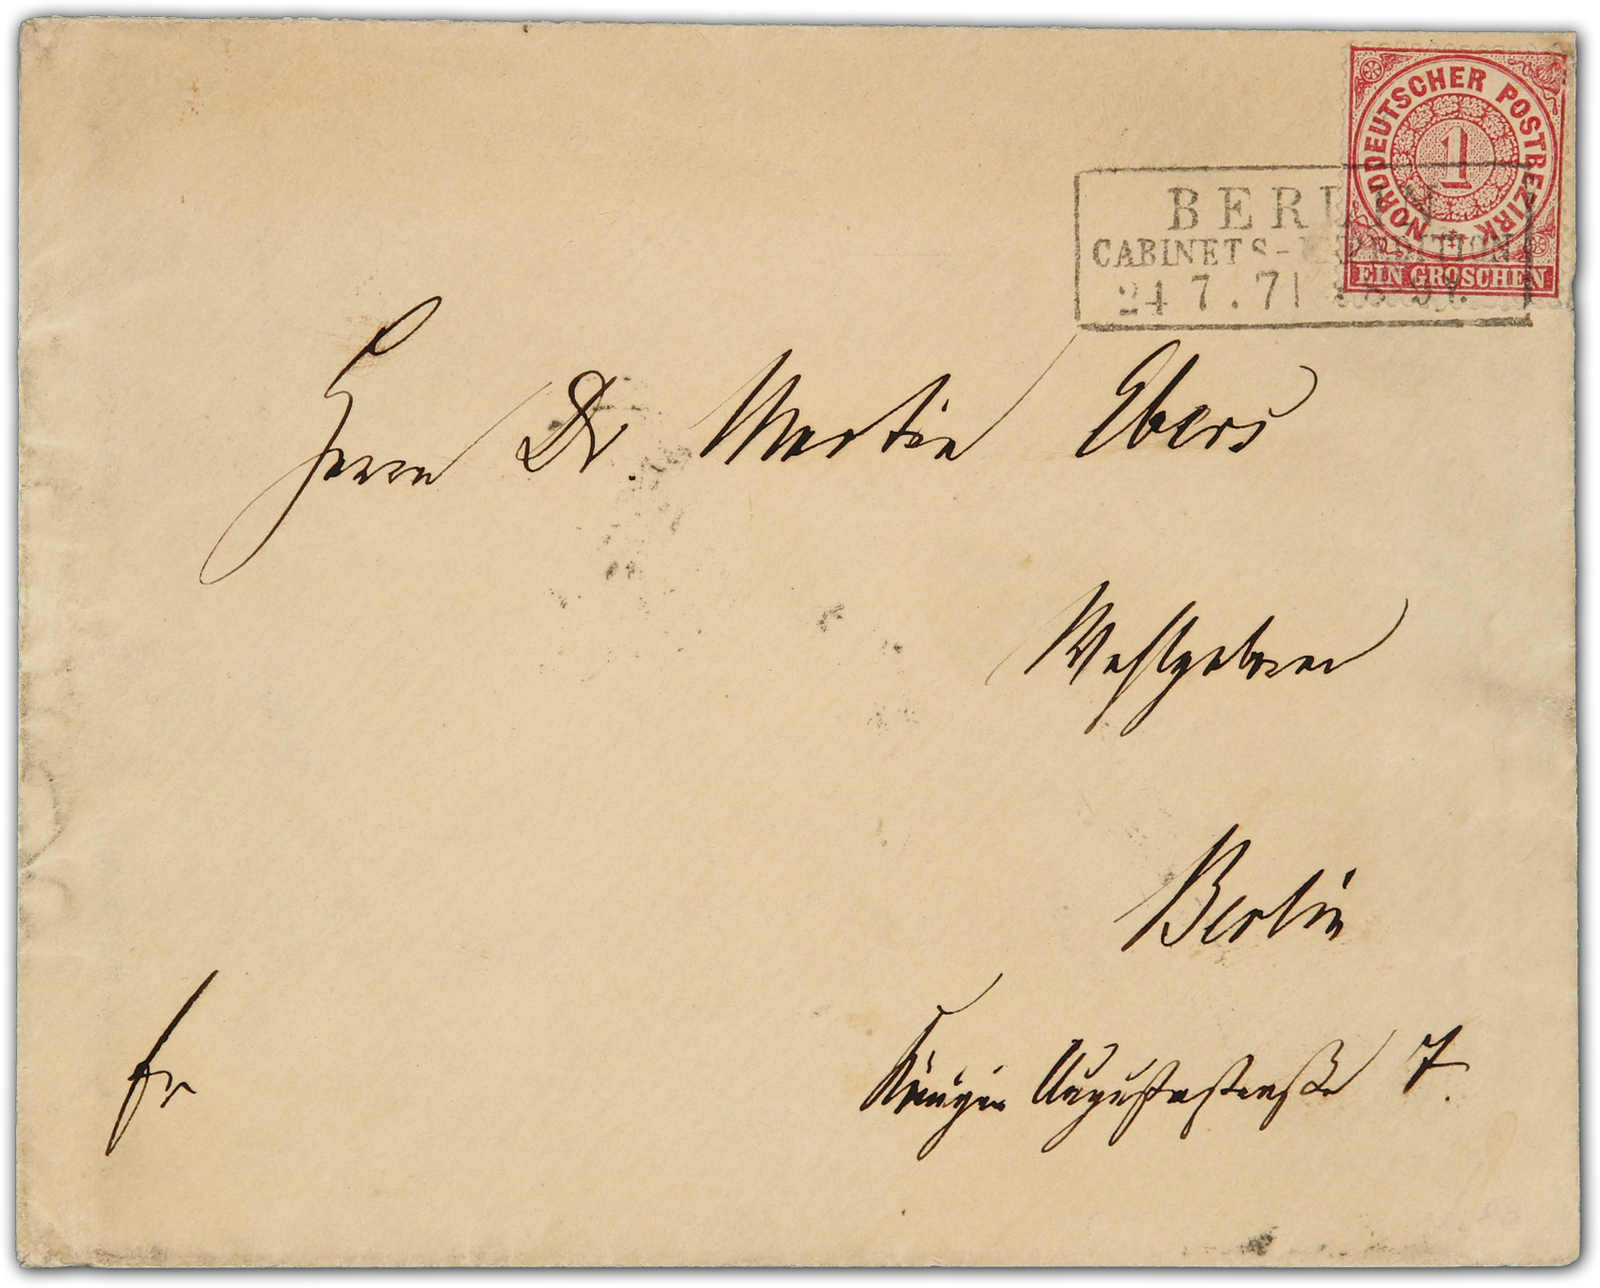 NORDDEUTSCHER POSTBEZIRK
1
EIN GROSCHEN
BERLIN
CABINETS-EXPEDITION
24 7. 71
Herrn Dr. Martin Ebers
Wohlgeboren
Berlin
Königin Augustastraße 7.
fr